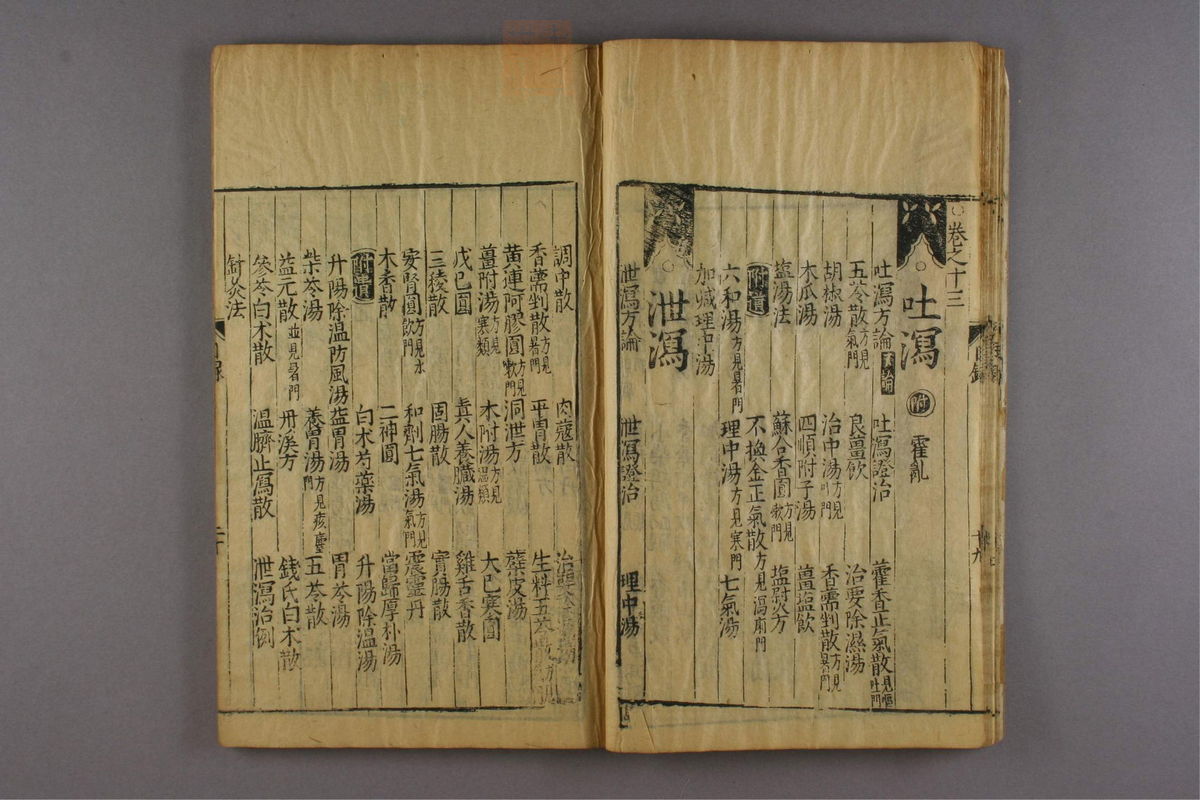 ○卷之十三
○吐瀉 附 霍亂
吐瀉方論 吐瀉證治 藿香正氣散見嘔吐門
五苓散方見氣門 良薑飲 治要除濕湯
胡椒湯 治中湯方見門 香需剉散方見暑門
木瓜湯 四順附子湯 薑塩飲
塩湯法 蘇合香圓方見欬門 塩熨方
附遺 不換金正氣散方見瀉痢門
六和湯方見暑門 理中湯方見寒門 七氣湯
加减理中湯
○泄瀉
泄瀉方論 泄瀉證治 理中湯
調中散 肉蔻散
香需剉散方見暑門 平胃散 生料五苓散
黃連阿膠圓方見欬門 洞泄方 蘖皮湯
薑附湯方見寒類 木附湯方見溫類 大已寒圓
戊巳圓 眞人養臟湯 雞舌香散
三稜散 固腸散 實腸散
安腎圓方見水飮門 和劑七氣湯方見氣門 震靈丹
木香散 二神圓 當歸厚朴湯
附遺 白术芍藥湯 升陽除濕湯
升陽除濕防風湯 益胃湯 胃苓湯
柴苓湯 養胃湯方見痎瘧門 五苓散
益元散並見暑門 丹溪方 錢氏白术散
參苓白术散 溫臍止瀉散 泄瀉治例
針灸法